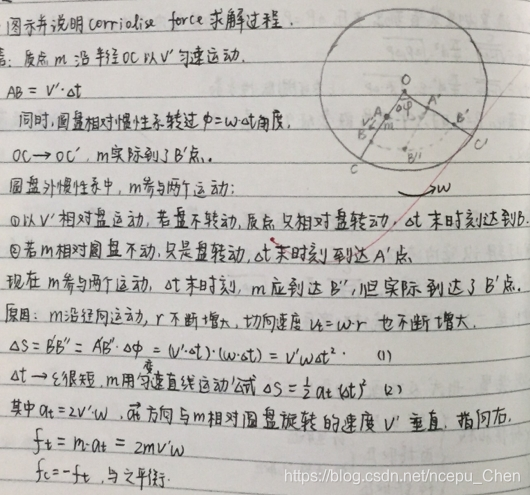 图示并说明 corrialise force 求解过程.
质点 m 沿半径 OC 以 V' 匀速运动.
AB = V'·Δt
同时, 圆盘相对惯性系转过 φ=ω·Δt 角度.
OC→OC', m 实际到了 B' 点.
圆盘外惯性系中, m 参与两个运动:
①以 V' 相对盘运动, 若盘不转动, 质点只相对盘转动, Δt 末时刻达到B.
②若 m 相对圆盘不动, 只是盘转动, Δt 末时刻到达 A' 点.
现在 m 参与两个运动, Δt 末时刻, m 应到达 B'', 但实际到达了 B' 点.
原因: m 沿径向运动, r 不断增大, 切向速度 Vt=ω·r 也不断增大.
ΔS = B'B'' = A'B''·Δφ = (V'·Δt)·(ω·Δt) = V'ωΔt². (1)
Δt→ε很短, m 用匀变速直线运动公式 ΔS = ½ at (Δt)² (2)
其中 at = 2V'·ω, at 方向与 m 相对圆盘旋转的速度 V' 垂直, 指向右.
ft = m·at = 2mV'ω
fc = -ft, 与之平衡.
O
φ
A
A'
V'
m
B
B'
B''
C
C'
ω
https://blog.csdn.net/ncepu_Chen